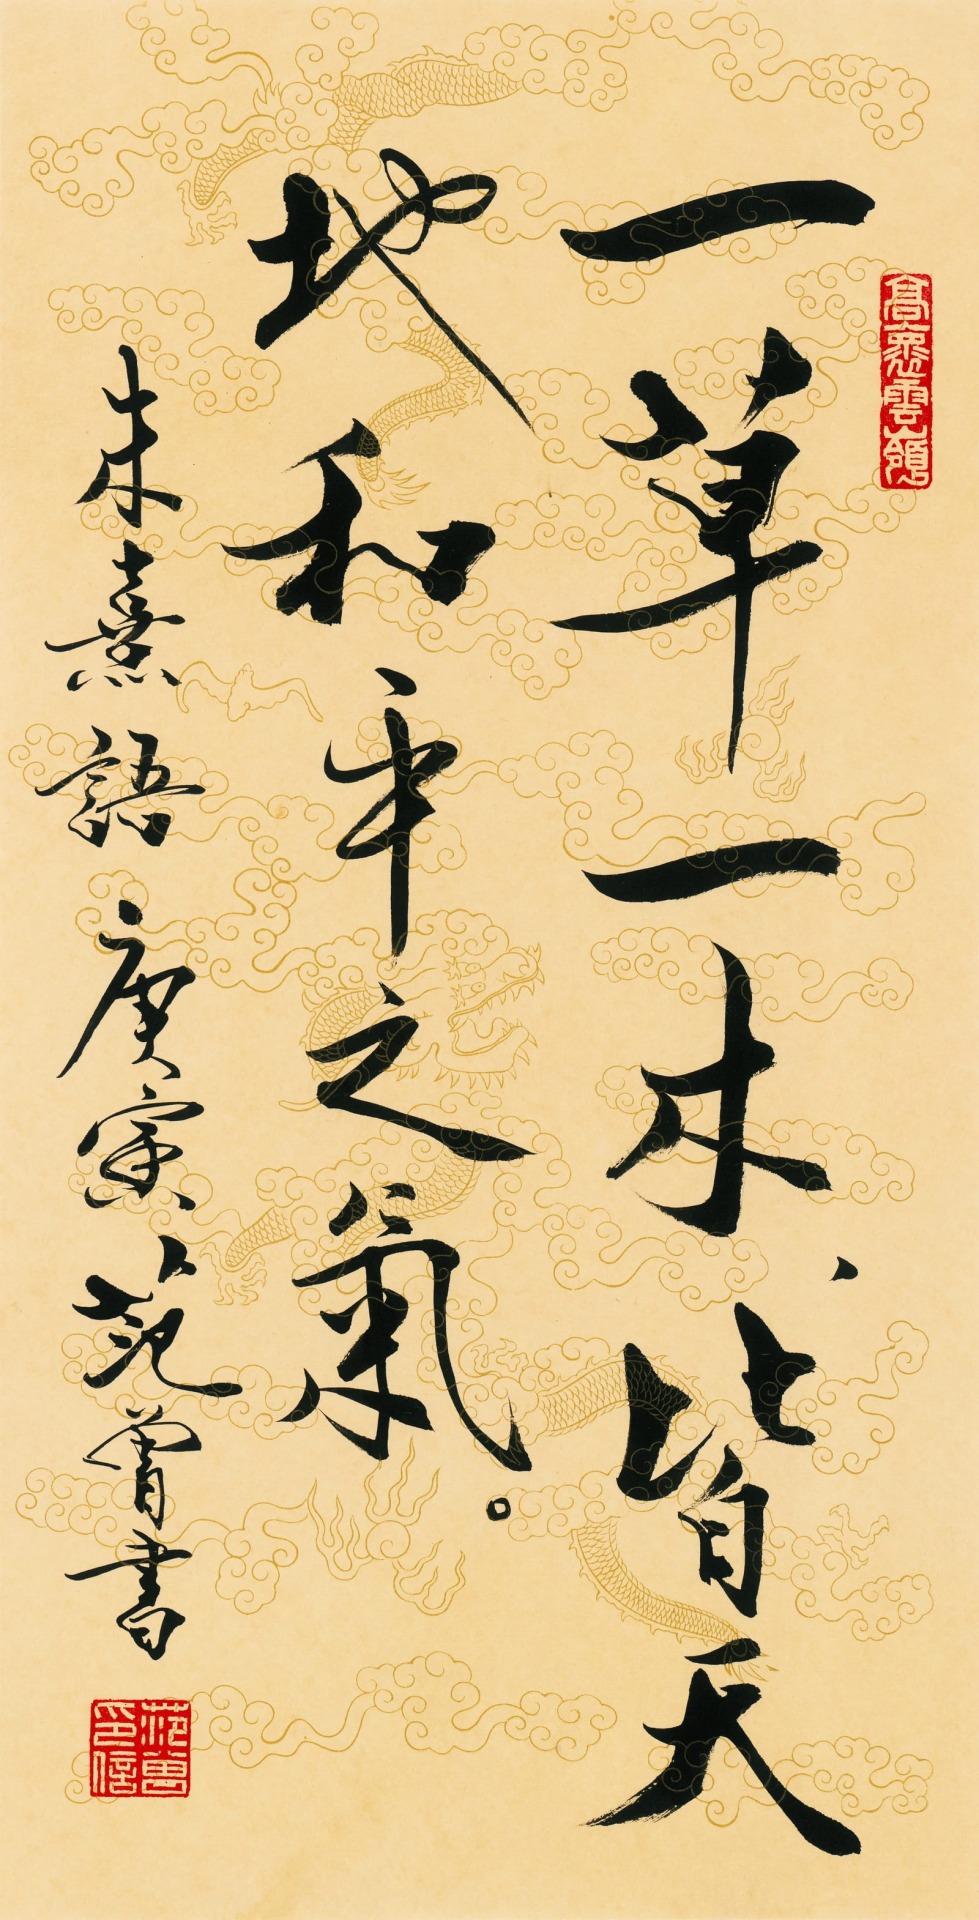 一草一木、皆天
地和平之氣。
朱熹語 庚寅 范曾書
范曾
印信